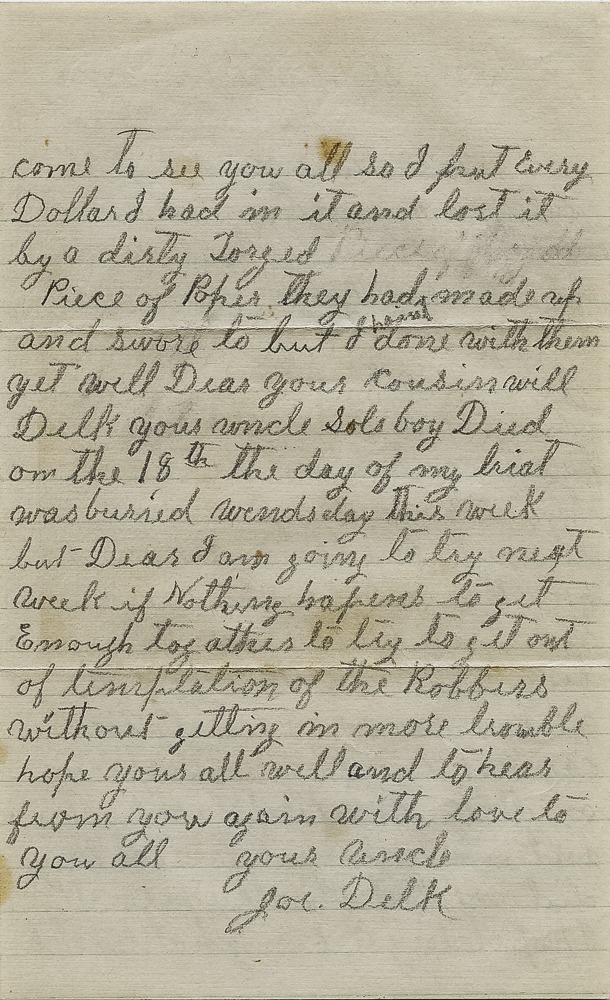 come to see you all so I put Every
Dollar I had in it and lost it
by a dirty Forged
Piece of Paper they had made up
and swore to but I haint done with them
yet well Dear your cousin will
Delk your uncle Sols boy Died
on the 18th the day of my trial
was burried wendsday this week
but Dear I am going to try next
week if Nothing hapens to get
Enough togather to try to get out
of temptation of the Robbers
without getting in more trouble
hope your all well and to hear
from you again with love to
you all your uncle
Joe. Delk